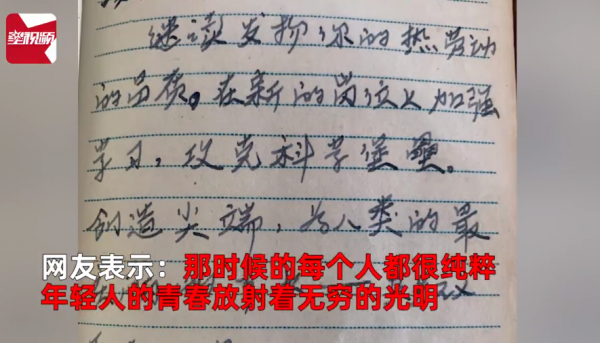 视频
继续发扬你的热劳动
的品质。在新的岗位上加强
学习，攻克科学堡垒。
创造尖端，为人类的最
网友表示：那时候的每个人都很纯粹
年轻人的青春放射着无穷的光明